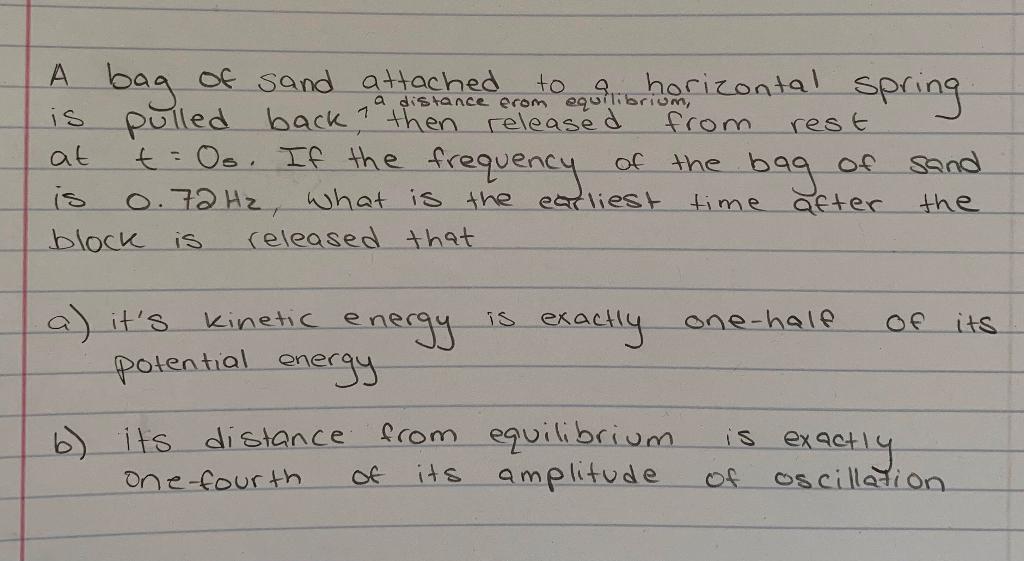 A bag of sand attached to a horizontal spring
a distance from equilibrium,
is pulled back, then released from rest
at t = 0s. If the frequency of the bag of sand
is 0.72Hz, what is the earliest time after the
block is released that
a) it's kinetic energy is exactly one-half of its
potential energy
b) its distance from equilibrium is exactly
one-fourth of its amplitude of oscillation